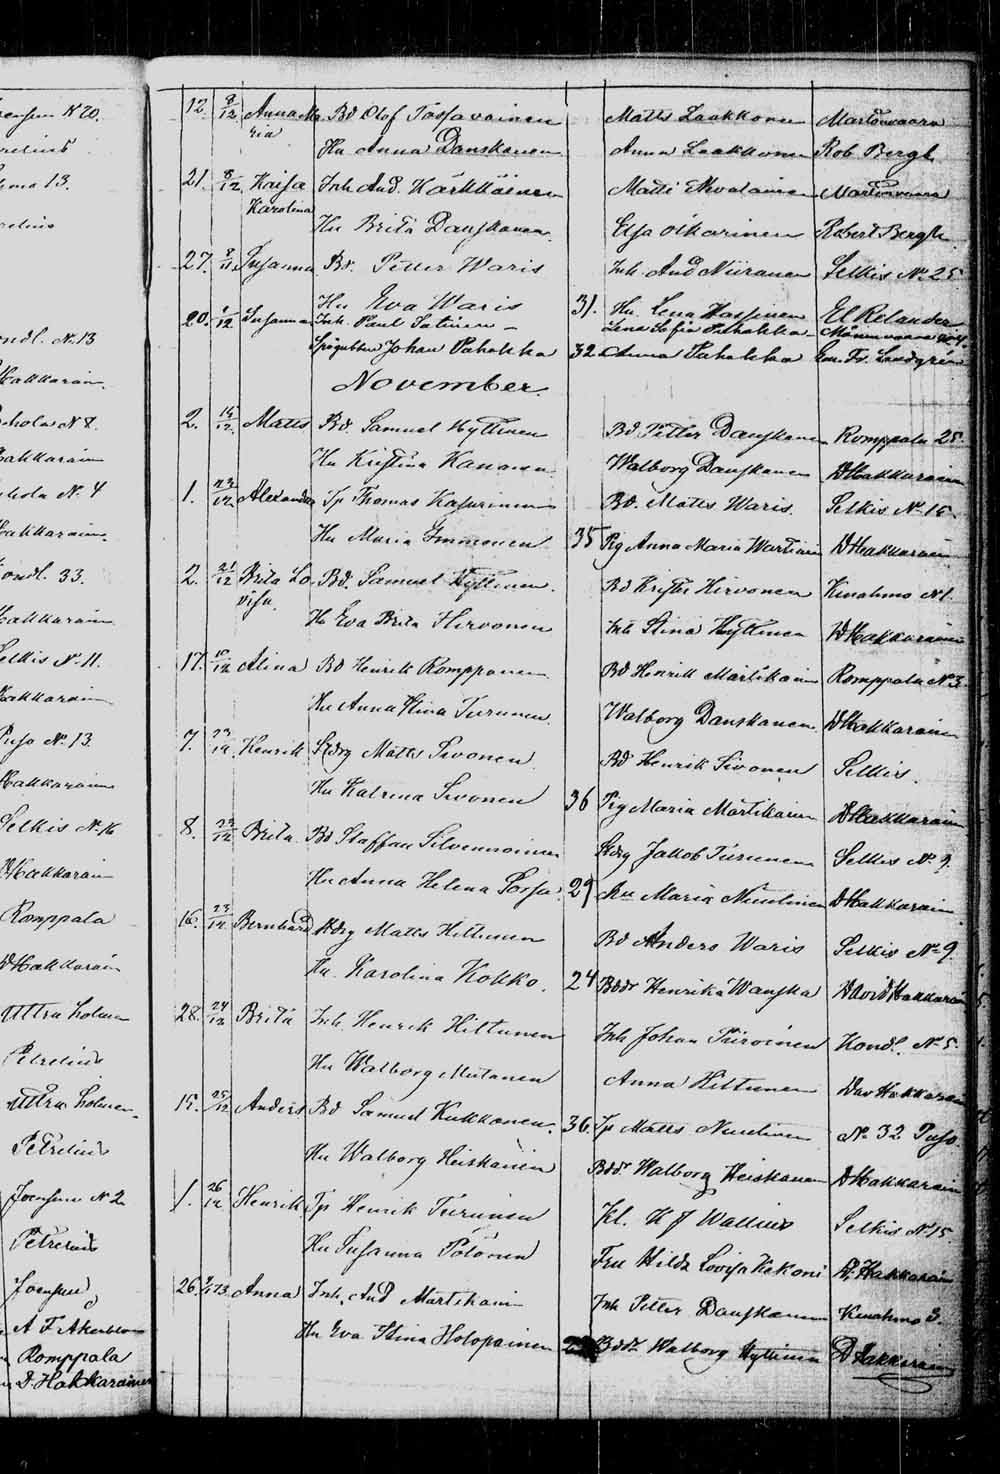 N 20.
12. 9/12 Anna Ma Bd Olof Tossavainen Matts Laakkonen Martonvaara
ria
Hu Anna Danskanen Anna Laakkonen Rob. Bergh
13.
21. 8/12 Kaisa Inh. And. Karkkäinen Matti Martonvaara
Karolina
Hu Brita Danskanen Elsa Robert Bergh
27. Susanna Bd. Petter Waris Inh. And Niiranen Selkis No 25
Hu Eva Waris 31. Hu. Lena Hassinen El Relander
20. Susanna Inh. Paul Satinen Lena Sofia Pakakka
Kondl. N. 13
Johan Pakakka 32. Anna Pakakka Landgrén
November.
Hakkarain.
N 8. 2. 14/12. Matts Bd. Samuel Hyttinen Bd Petter Danskanen Romppala 25.
Hakkarain Hu Kristina Kananen Walborg Danskanen D Hakkarain
No. 4 1. 23/12 Alexander Tp Thomas Kasurinen Bd. Matts Waris. Selkis No 15
Hakkarain. Hu Maria Immonen 35 Pig Anna Maria Wartiain D Hakkarain
Kondl. 33. 2. 21/12 Brita Lo- Bd. Samuel Hyttinen. Bd Krister Hirvonen Kinahmo N1.
visa.
Hakkarain Hu Eva Brita Hirvonen Inh Stina Hyttinen D Hakkarainen
Selkis No. 11. 17. 10/12 Alina Bd Henrik Romppanen Bd Henrik Martikain Romppala No 3
Hakkarain Hu Anna Stina Turunen. Walborg Danskanen D Hakkarain
Puso No. 13. 7. 23/12. Henrik Stdrg Matts Sivonen Bd Henrik Sivonen Selkis.
Hakkarain Hu Katrina Sivonen 36 Pig Maria Martikain D Hakkarain
Selkis No. 16 8. 23/12 Brita Bd Staffan Silvennoinen Stdrg Jakob Turunen Selkis No. 9.
D Hakkarain Hu Anna Helena Sorsa. 29 Hu Maria Nuutinen D Hakkarain
Romppala 16. 23/12 Bernhard Stdrg Matts Hiltunen Bd Anders Waris Selkis No 9.
D Hakkarain Hu. Karolina Kokko. 24 Bddr Henrika Wanska David Hakkarain
Uttra holmen 28. 24/12 Brita Inh. Henrik Hiltunen Inh Johan Kondl. No 5.
Petrelius Hu Walborg Mutanen Anna Hiltunen Dav Hakkarain
Uttra holmen. 15. 25/12 Anders Bd Samuel Kukkonen. 36. Tp Matts Nuutinen No 32 Puso.
Petrelius Hu Walborg Heiskanen Bddr Walborg Heiskanen D Hakkarain
Joensuu No 2 1. 26/12 Henrik. Tp Henrik Turunen Kl. K J Wallius Selkis No 15.
Petrelius Hu Susanna Polonen Fru Hilda Lovisa Kekoni D. Hakkarain
Joensuu 26. Anna Inh. And Martikain Inh Petter Danskanen Kinahmo 3.
A F Akerblom
Romppala Hu Eva Stina Holopainen Bddr Walborg Hyttinen D Hakkarain
D. Hakkarainen